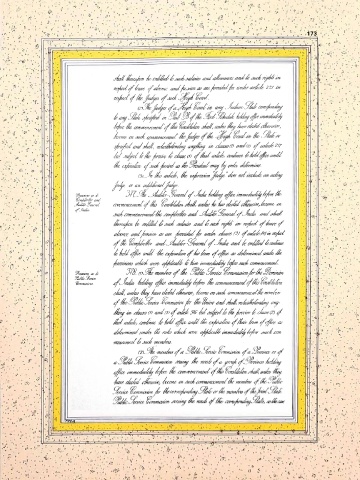 173
shall thereupon be entitled to such salaries and allowances and to such rights in
respect of leave of absence and pension as are provided for under article 221 in
respect of the Judges of such High Court.
(2) The Judges of a High Court in any Indian State corresponding
to any State specified in Part B of the First Schedule holding office immediately
before the commencement of this Constitution shall, unless they have elected otherwise,
become on such commencement the Judges of the High Court in the State so
specified and shall, notwithstanding anything in clauses (1) and (2) of article 217
but subject to the proviso to clause (1) of that article, continue to hold office until
the expiration of such period as the President may by order determine.
(3) In this article, the expression Judge does not include an acting
Judge or an additional Judge.
Provisions as to
Comptroller and
Auditor-General
of India
377. The Auditor-General of India holding office immediately before the
commencement of this Constitution shall, unless he has elected otherwise, become on
such commencement the Comptroller and Auditor-General of India and shall
thereupon be entitled to such salaries and to such rights in respect of leave of
absence and pension as are provided for under clause (3) of article 148 in respect
of the Comptroller and Auditor-General of India and be entitled to continue
to hold office until the expiration of his term of office as determined under the
provisions which were applicable to him immediately before such commencement.
Provisions as to
Public Service
Commissions
378. (1) The members of the Public Service Commission for the Dominion
of India holding office immediately before the commencement of this Constitution
shall, unless they have elected otherwise, become on such commencement the members
of the Public Service Commission for the Union and shall, notwithstanding any-
thing in clauses (1) and (2) of article 316 but subject to the proviso to clause (2) of
that article, continue to hold office until the expiration of their term of office as
determined under the rules which were applicable immediately before such com-
mencement to such members.
(2) The members of a Public Service Commission of a Province or of
a Public Service Commission serving the needs of a group of Provinces holding
office immediately before the commencement of this Constitution shall, unless they
have elected otherwise, become on such commencement the members of the Public
Service Commission for the corresponding State or the members of the Joint State
Public Service Commission serving the needs of the corresponding States, as the case